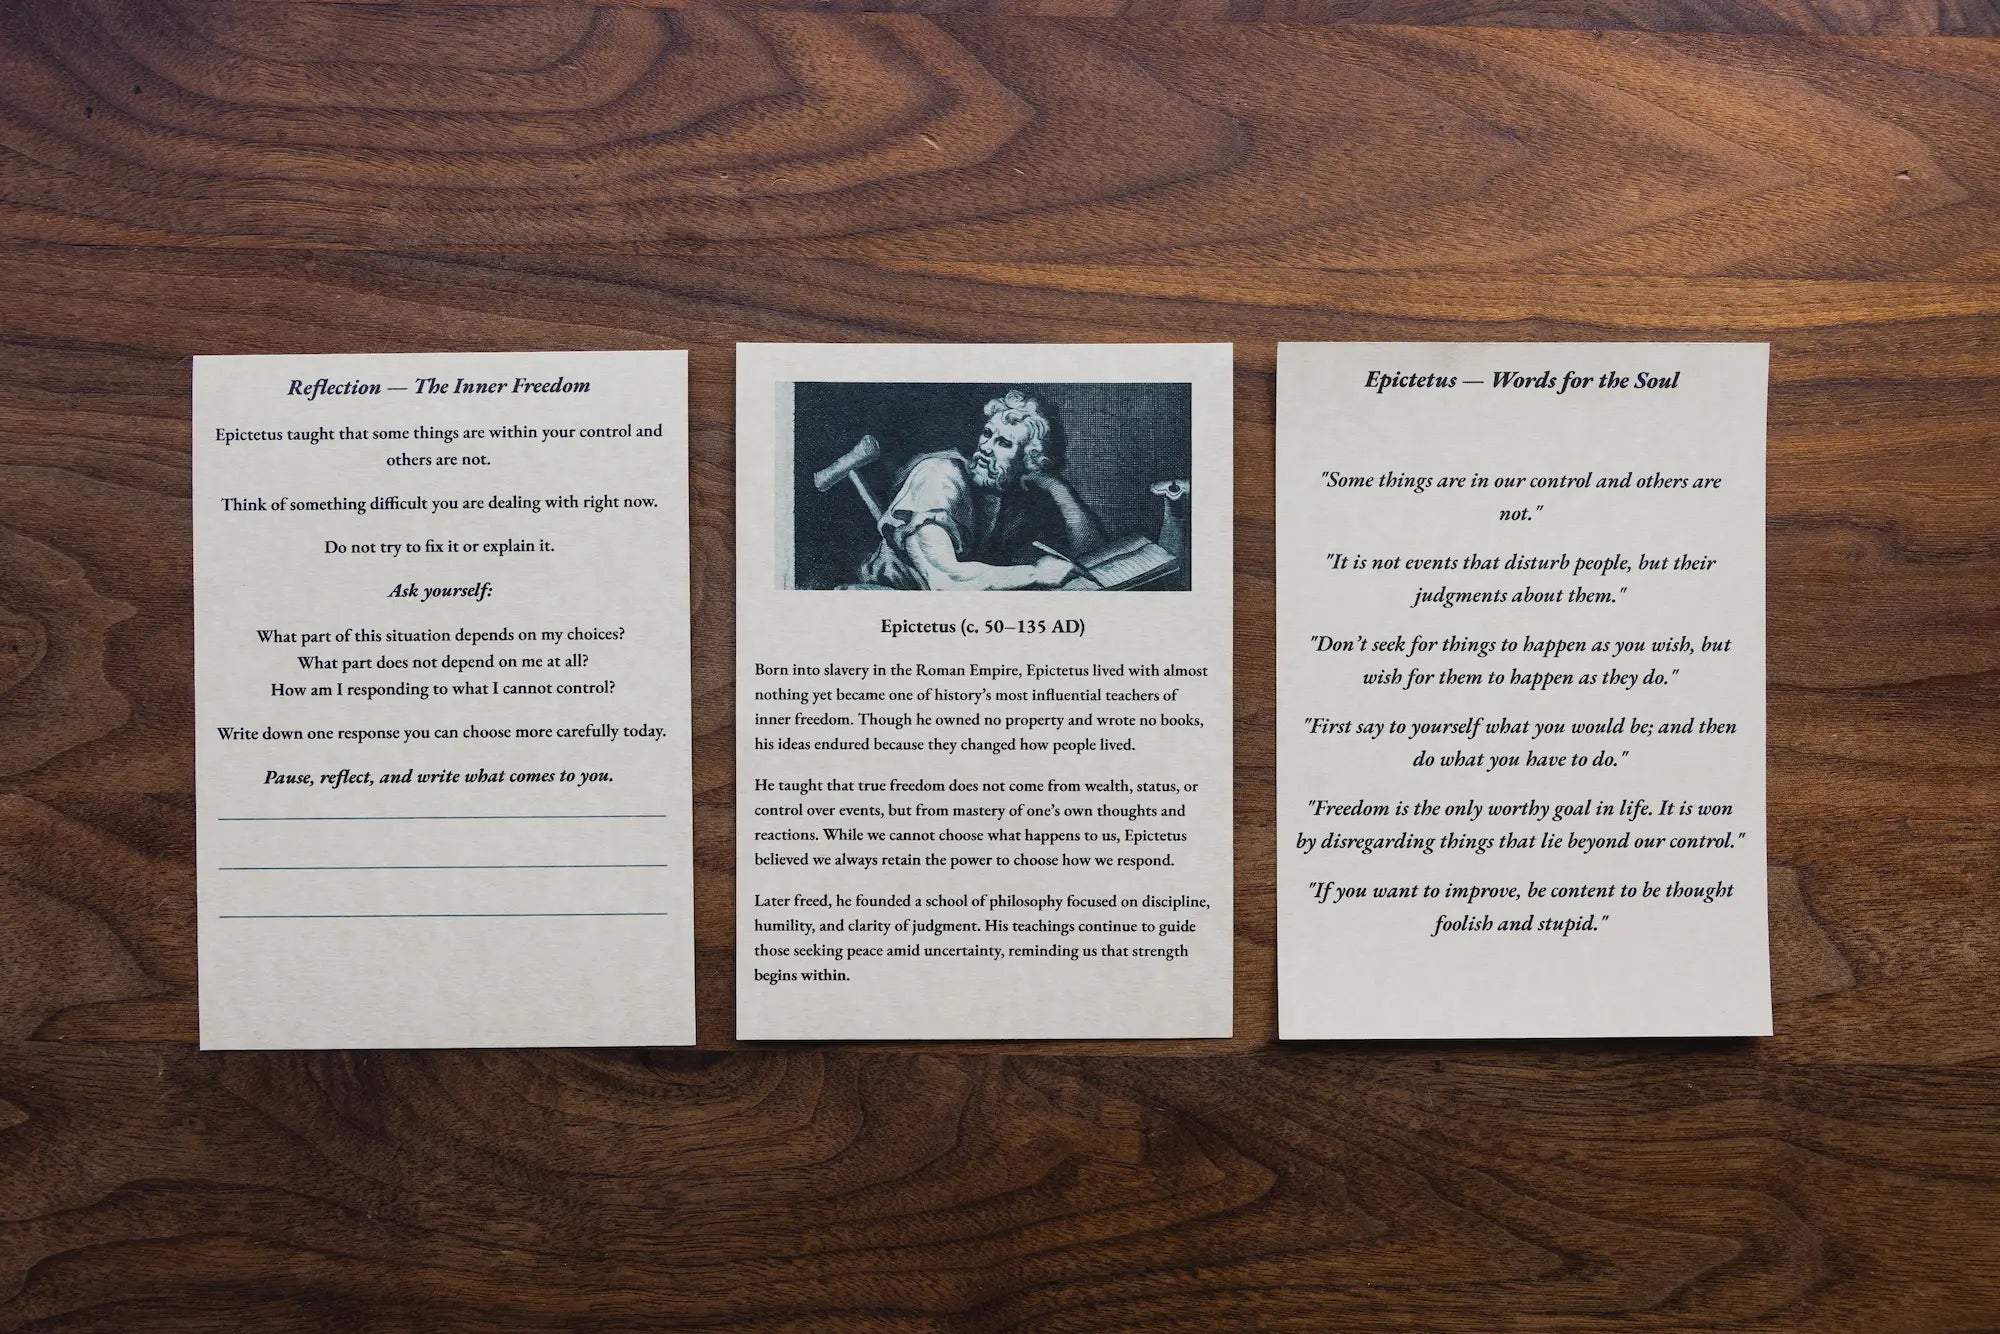 Reflection — The Inner Freedom
Epictetus taught that some things are within your control and
others are not.
Think of something difficult you are dealing with right now.
Do not try to fix it or explain it.
Ask yourself:
What part of this situation depends on my choices?
What part does not depend on me at all?
How am I responding to what I cannot control?
Write down one response you can choose more carefully today.
Pause, reflect, and write what comes to you.
Epictetus (c. 50–135 AD)
Born into slavery in the Roman Empire, Epictetus lived with almost
nothing yet became one of history’s most influential teachers of
inner freedom. Though he owned no property and wrote no books,
his ideas endured because they changed how people lived.
He taught that true freedom does not come from wealth, status, or
control over events, but from mastery of one’s own thoughts and
reactions. While we cannot choose what happens to us, Epictetus
believed we always retain the power to choose how we respond.
Later freed, he founded a school of philosophy focused on discipline,
humility, and clarity of judgment. His teachings continue to guide
those seeking peace amid uncertainty, reminding us that strength
begins within.
Epictetus — Words for the Soul
"Some things are in our control and others are
not."
"It is not events that disturb people, but their
judgments about them."
"Don’t seek for things to happen as you wish, but
wish for them to happen as they do."
"First say to yourself what you would be; and then
do what you have to do."
"Freedom is the only worthy goal in life. It is won
by disregarding things that lie beyond our control."
"If you want to improve, be content to be thought
foolish and stupid."